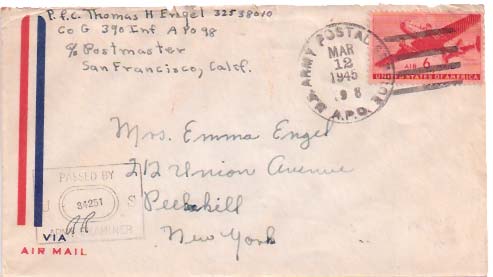 P.f.C. Thomas H Engel 32538010
Co G 390 Inf APO 98
c/o Postmaster
San Francisco, Calif.
U.S. ARMY POSTAL SERVICE
MAR
12
1945
98
A.P.O.
AIR 6¢
UNITED STATES OF AMERICA
Mrs. Emma Engel
212 Union Avenue
Peekskill
New York
PASSED BY
U 34251 S
ARMY EXAMINER
VIA
AIR MAIL